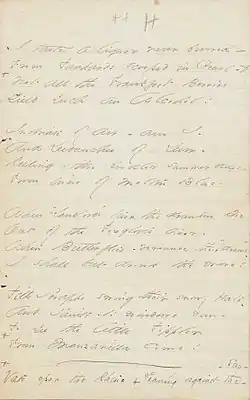 I taste a liquor never brewed –
From Tankards scooped in Pearl –
Not all the Frankfort Berries
Yield such an Alcohol!
Inebriate of Air – am I –
And Debauchee of Dew –
Reeling – thro endless summer days –
From inns of Molten Blue –
When "Landlords" turn the drunken Bee
Out of the Foxglove's door –
When Butterflies – renounce their "drams" –
I shall but drink the more!
Till Seraphs swing their snowy Hats –
And Saints – to windows run –
To see the little Tippler
From Manzanilla come!